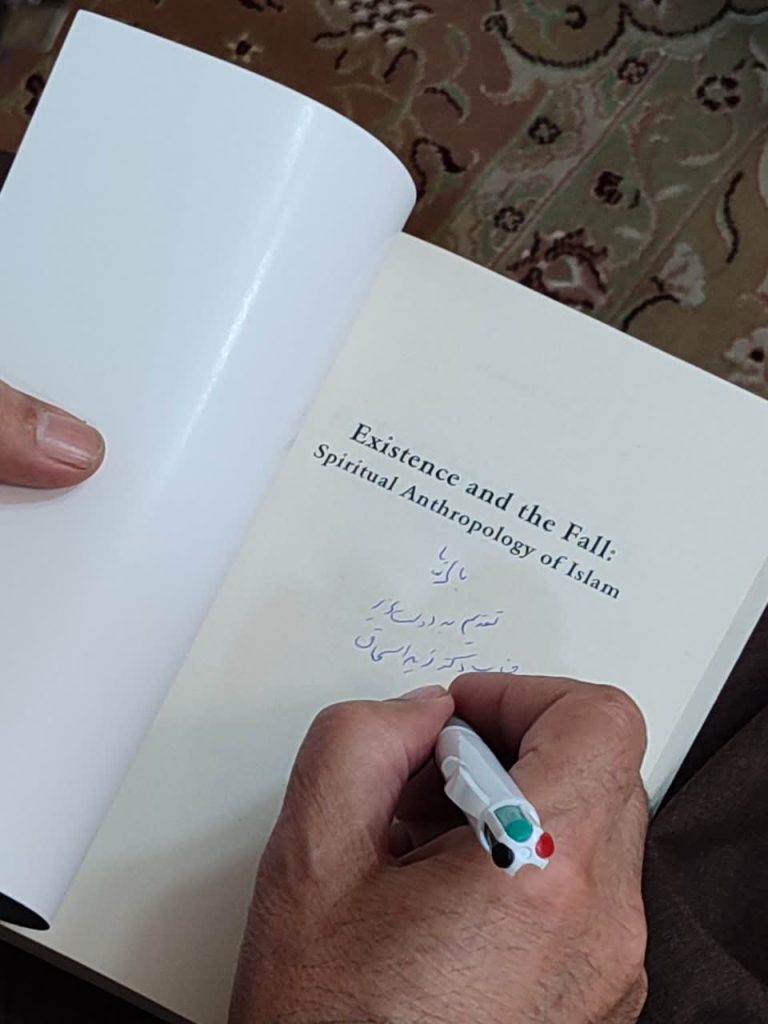 Existence and the Fall:
Spiritual Anthropology of Islam
تقدیم به دوست عزیز
جناب دکتر زید اسحاق